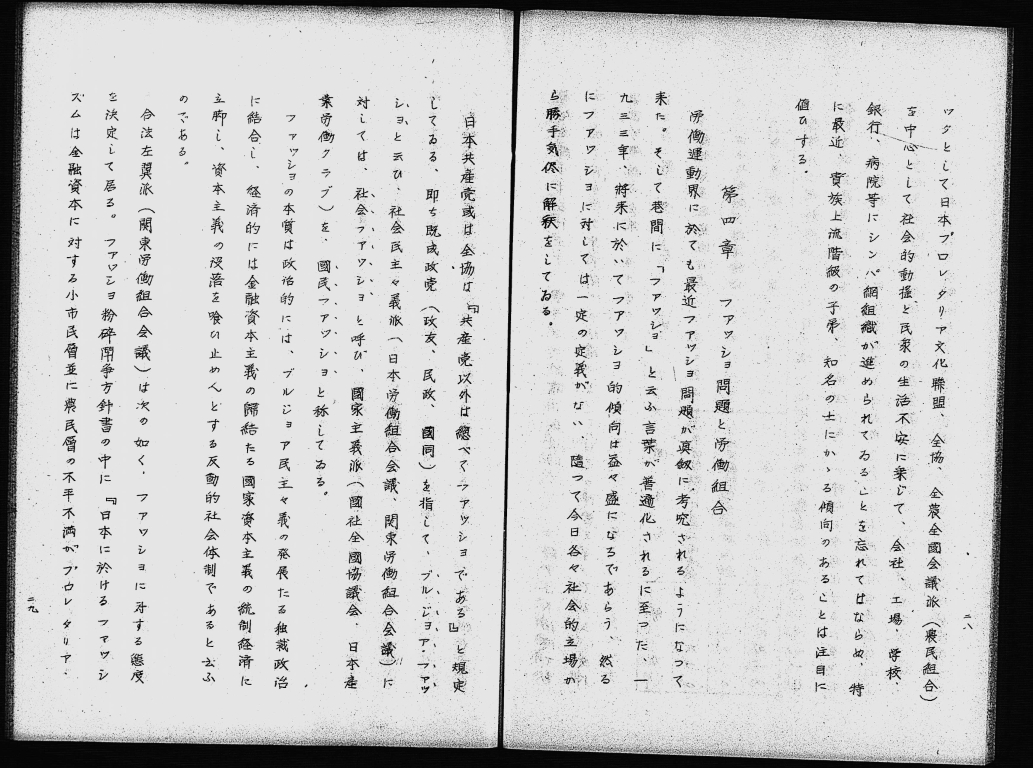 ックとして日本プロレタリア文化聯盟、全協、全農全國会議派（農民組合）
を中心として社会的動揺と民衆の生活不安に乗じて、会社、工場、学校、
銀行、病院等にシンパ網組織が進められてゐることを忘れてはならぬ、特
に最近、貴族上流階級の子弟、知名の士にかゝる傾向のあることは注目に
値ひする。
第四章　ファッショ問題と労働組合
労働運動界に於ても最近ファッショ問題が真剣に考究されるようになつて
来た。そして巷間に、「ファッショ」と云ふ言葉が普遍化されるに至つた、一
九三三年、将来に於いてファッショ的傾向は益々盛になるであらう、然る
にファッショに対しては一定の定義がない、随つて今日各々社会的立場か
ら勝手気侭に解釈をしてゐる。
二八
日本共産党或は全協は『共産党以外は總べてファッショである』と規定
してゐる、即ち既成政党（政友、民政、國同）を指して、ブルジョア・ファッ
ショと云ひ、社会民主々義派（日本労働組合会議、関東労働組合会議）に
対しては、社会ファッショ、と呼び、國家主義派（國社全國協議会、日本産
業労働クラブ）を、國民ファッショと称してゐる。
ファッショの本質は政治的には、ブルジョア民主々義の発展たる独裁政治
に結合し、経済的には金融資本主義の歸結たる國家資本主義の統制経済に
立脚し、資本主義の没落を喰ひ止めんとする反動的社会体制であると云ふ
のである。
合法左翼派（関東労働組合会議）は次の如く、ファッショに対する態度
を決定して居る。ファッショ粉砕闘争方針書の中に『日本に於けるファッシ
ズムは金融資本に対する小市民層並に農民層の不平不満が、プロレタリア・
二九